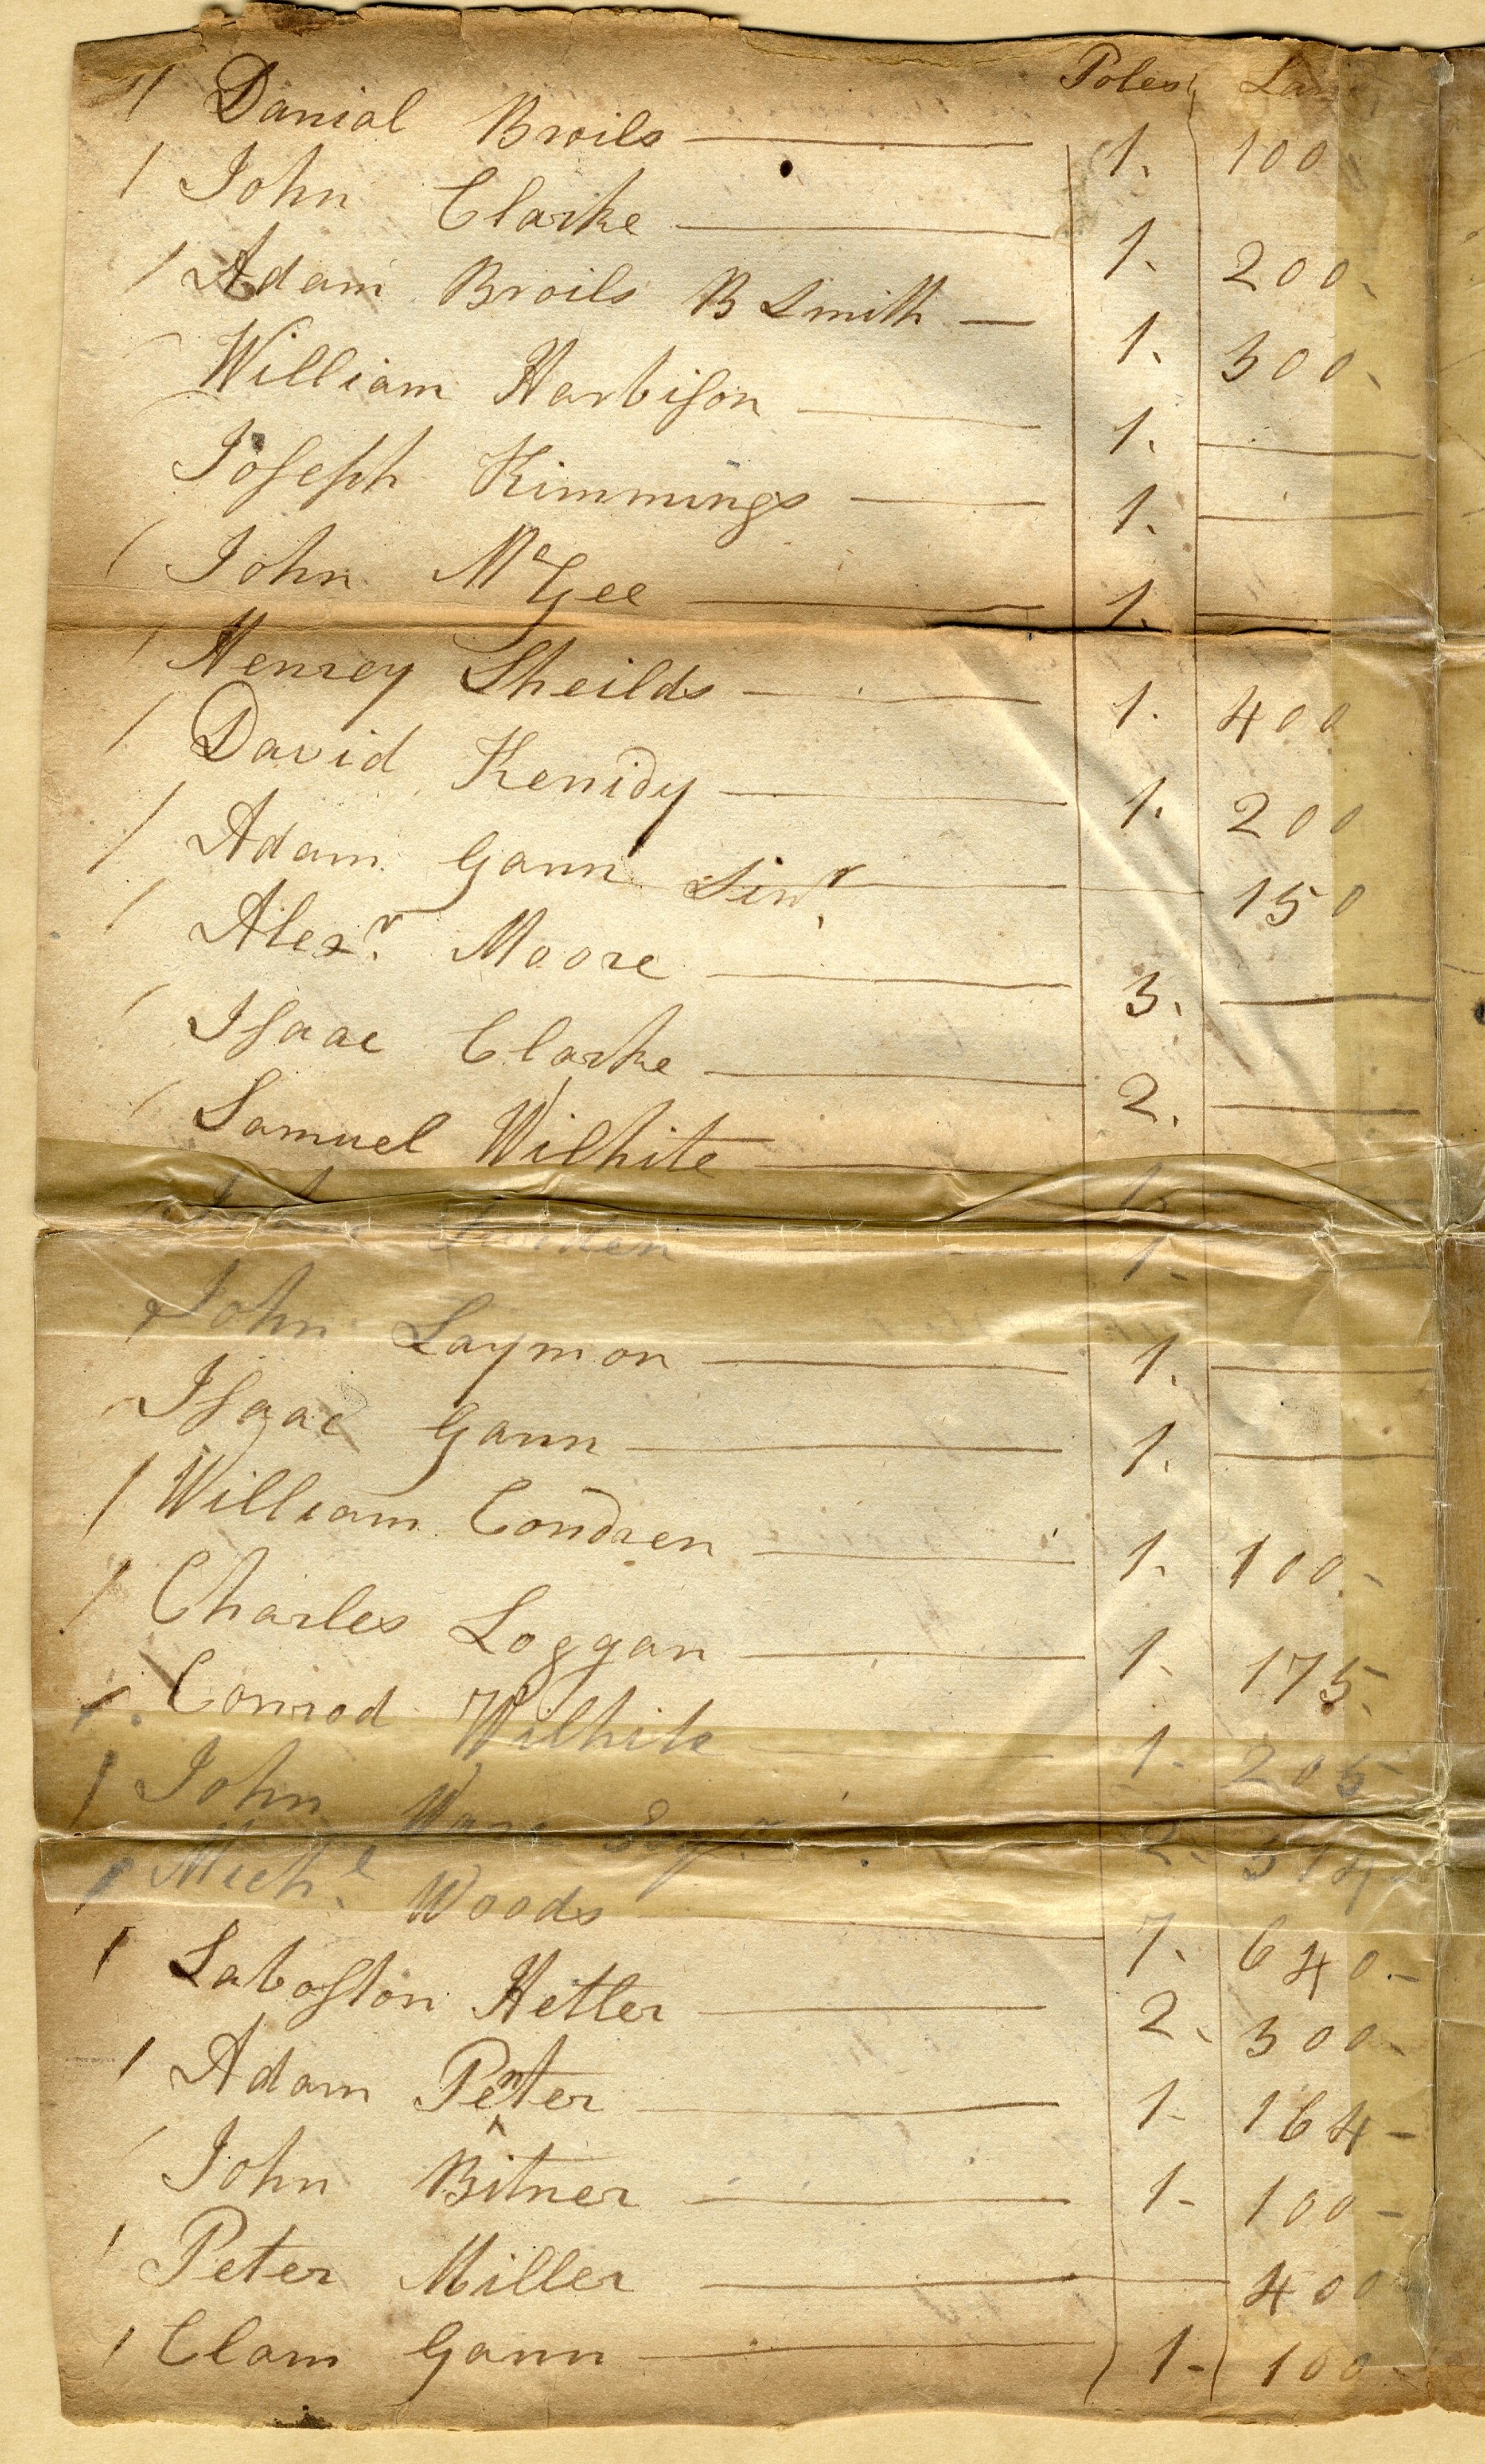 Poles Lan
/ Danial Broils — 1. 100
/ John Clarke — 1. 200.
/ Adam Broils B Smith — 1. 300.
William Harbison — 1. —
Joseph Kimmings — 1. —
/ John McGee — 1. —
/ Henrey Sheilds — 1. 400
/ David Kenidy — 1. 200
/ Adam Gann Sinr — 150
/ Alexr. Moore — 3. —
/ Isaac Clarke — 2. —
/ Samuel Wilhite — 1. —
— 1- —
John Laymon — 1. —
Isaac Gann — 1. —
/ William Condren — 1. 100.-
/ Charles Loggan — 1. 175.
/ Conrod Wilhite — 1. 205-
/ John Esqr. 2.
/ Michl. Woods — 7. 640.-
/ Laboston Hetler — 2. 300.
/ Adam Penter — 1- 164-
/ John Bitner — 1- 100-
/ Peter Miller — 400
/ Clam Gann — 1- 100